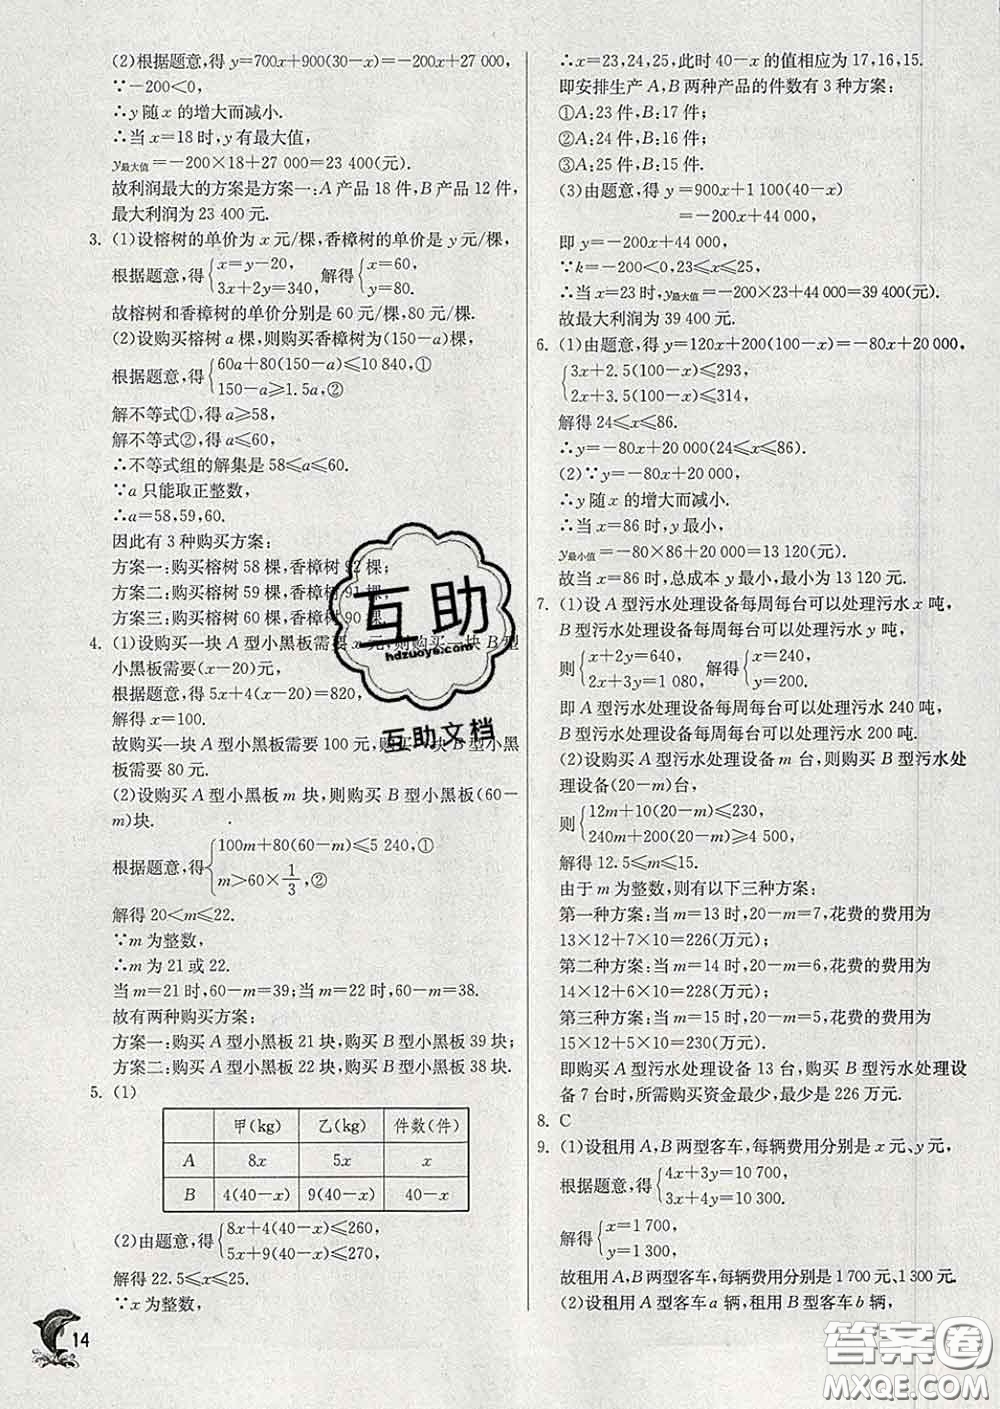 (2)根据题意,得 y=700x+900(30-x)=-200x+27 000,
∵-200<0,
∴y 随 x 的增大而减小.
∴当 x=18 时,y 有最大值,
y最大值=-200×18+27 000=23 400(元).
故利润最大的方案是方案一:A 产品 18 件,B 产品 12 件,
最大利润为 23 400 元.
3. (1)设榕树的单价为 x 元/棵,香樟树的单价是 y 元/棵,
根据题意,得{x=y-20, 3x+2y=340, 解得{x=60, y=80.
故榕树和香樟树的单价分别是 60 元/棵,80 元/棵.
(2)设购买榕树 a 棵,则购买香樟树为(150-a)棵,
根据题意,得{60a+80(150-a)≤10 840,① 150-a≥1.5a,②
解不等式①,得 a≥58,
解不等式②,得 a≤60,
∴不等式组的解集是 58≤a≤60.
∵a 只能取正整数,
∴a=58,59,60.
因此有 3 种购买方案:
方案一:购买榕树 58 棵,香樟树 92 棵;
方案二:购买榕树 59 棵,香樟树 91 棵;
方案三:购买榕树 60 棵,香樟树 90 棵.
4. (1)设购买一块 A 型小黑板需要 x 元,则购买一块 B 型
小黑板需要(x-20)元,
根据题意,得 5x+4(x-20)=820,
解得 x=100.
故购买一块 A 型小黑板需要 100 元,购买一块 B 型小黑
板需要 80 元.
(2)设购买 A 型小黑板 m 块,则购买 B 型小黑板(60-
m)块.
根据题意,得{100m+80(60-m)≤5 240,① m>60×1/3,②
解得 20<m≤22.
∵m 为整数,
∴m 为 21 或 22.
当 m=21 时,60-m=39;当 m=22 时,60-m=38.
故有两种购买方案:
方案一:购买 A 型小黑板 21 块,购买 B 型小黑板 39 块;
方案二:购买 A 型小黑板 22 块,购买 B 型小黑板 38 块.
5. (1)
甲(kg) 乙(kg) 件数(件)
A 8x 5x x
B 4(40-x) 9(40-x) 40-x
(2)由题意,得{8x+4(40-x)≤260, 5x+9(40-x)≤270,
解得 22.5≤x≤25.
∵x 为整数,
14
∴x=23,24,25,此时 40-x 的值相应为 17,16,15.
即安排生产 A,B 两种产品的件数有 3 种方案:
①A:23 件,B:17 件;
②A:24 件,B:16 件;
③A:25 件,B:15 件.
(3)由题意,得 y=900x+1 100(40-x)
=-200x+44 000,
即 y=-200x+44 000,
∵k=-200<0,23≤x≤25,
∴当 x=23 时,y最大值=-200×23+44 000=39 400(元).
故最大利润为 39 400 元.
6. (1)由题意,得 y=120x+200(100-x)=-80x+20 000,
{3x+2.5(100-x)≤293, 2x+3.5(100-x)≤314,
解得 24≤x≤86.
∴y=-80x+20 000(24≤x≤86).
(2)∵y=-80x+20 000,
∴y 随 x 的增大而减小.
∴当 x=86 时,y 最小,
y最小值=-80×86+20 000=13 120(元).
故当 x=86 时,总成本 y 最小,最小为 13 120 元.
7. (1)设 A 型污水处理设备每周每台可以处理污水 x 吨,
B 型污水处理设备每周每台可以处理污水 y 吨,
则{x+2y=640, 2x+3y=1 080, 解得{x=240, y=200.
即 A 型污水处理设备每周每台可以处理污水 240 吨,
B 型污水处理设备每周每台可以处理污水 200 吨.
(2)设购买 A 型污水处理设备 m 台,则购买 B 型污水处
理设备(20-m)台,
则{12m+10(20-m)≤230, 240m+200(20-m)≥4 500,
解得 12.5≤m≤15.
由于 m 为整数,则有以下三种方案:
第一种方案:当 m=13 时,20-m=7,花费的费用为
13×12+7×10=226(万元);
第二种方案:当 m=14 时,20-m=6,花费的费用为
14×12+6×10=228(万元);
第三种方案:当 m=15 时,20-m=5,花费的费用为
15×12+5×10=230(万元).
即购买 A 型污水处理设备 13 台,购买 B 型污水处理设
备 7 台时,所需购买资金最少,最少是 226 万元.
8. C
9. (1)设租用 A,B 两型客车,每辆费用分别是 x 元、y 元,
根据题意,得{4x+3y=10 700, 3x+4y=10 300.
解得{x=1 700, y=1 300,
故租用 A,B 两型客车,每辆费用分别是 1 700 元、1 300 元.
(2)设租用 A 型客车 a 辆,租用 B 型客车 b 辆,
互助
hdzuoye.com
互助文档
答案圈
MXQE.COM